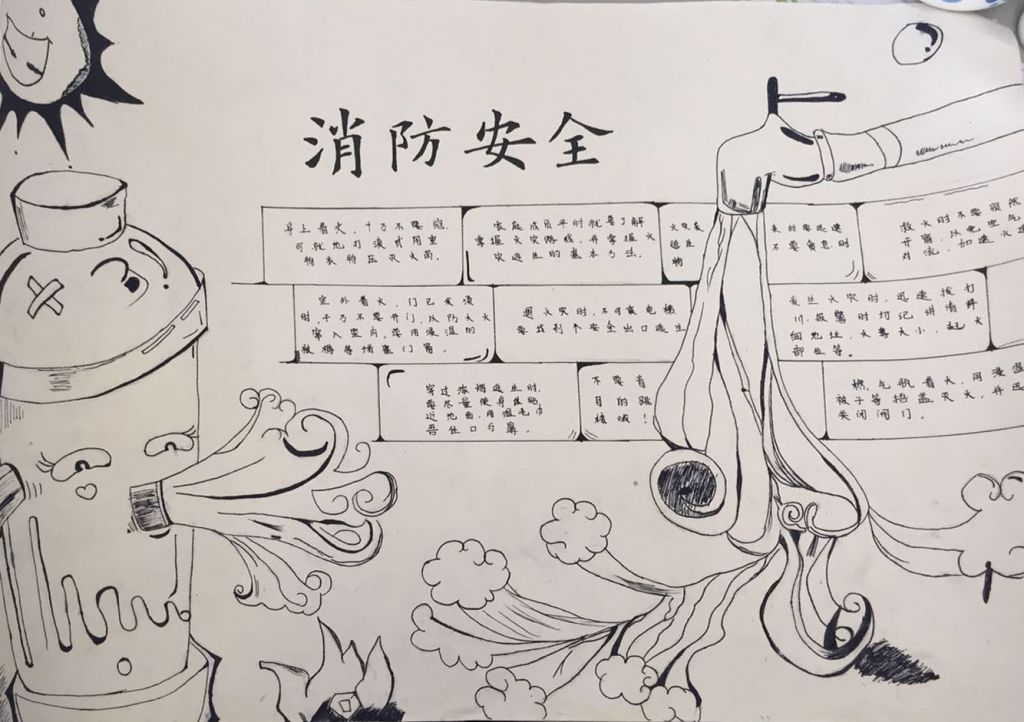 消防安全
身上着火，千万不要跑
可就地打滚或用重
物衣物压灭火苗。
家庭成员平时就要了解
掌握火灾路线，并掌握火
灾逃生的基本方法。
火灾袭
逃生
物
来时要迅速
不要贪恋财
救火时不要贸然
开窗，以免空气
对流，加速火
室外着火，门已发烫
时，千万不要开门，以防大火
窜入室内，要用浸湿的
被褥等堵塞门窗。
遇火灾时，不可乘电梯
要找到个安全出口逃生
发生火灾时，迅速拔打
报警时切记讲清详
细地址，火势大小，起火
部位等。
穿过浓烟逃生时，
要尽量使身体贴
近地面，用湿毛巾
吾住口与鼻。
不要盲
目的跳
楼喊！
燃气瓶着火，用浸湿
被子等捂盖灭火，并迅
关闭阀门。